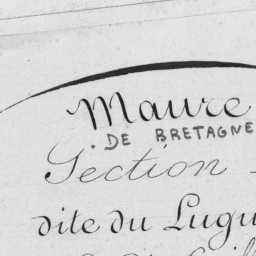 Maure
DE BRETAGNE
Section
dite du Lugu